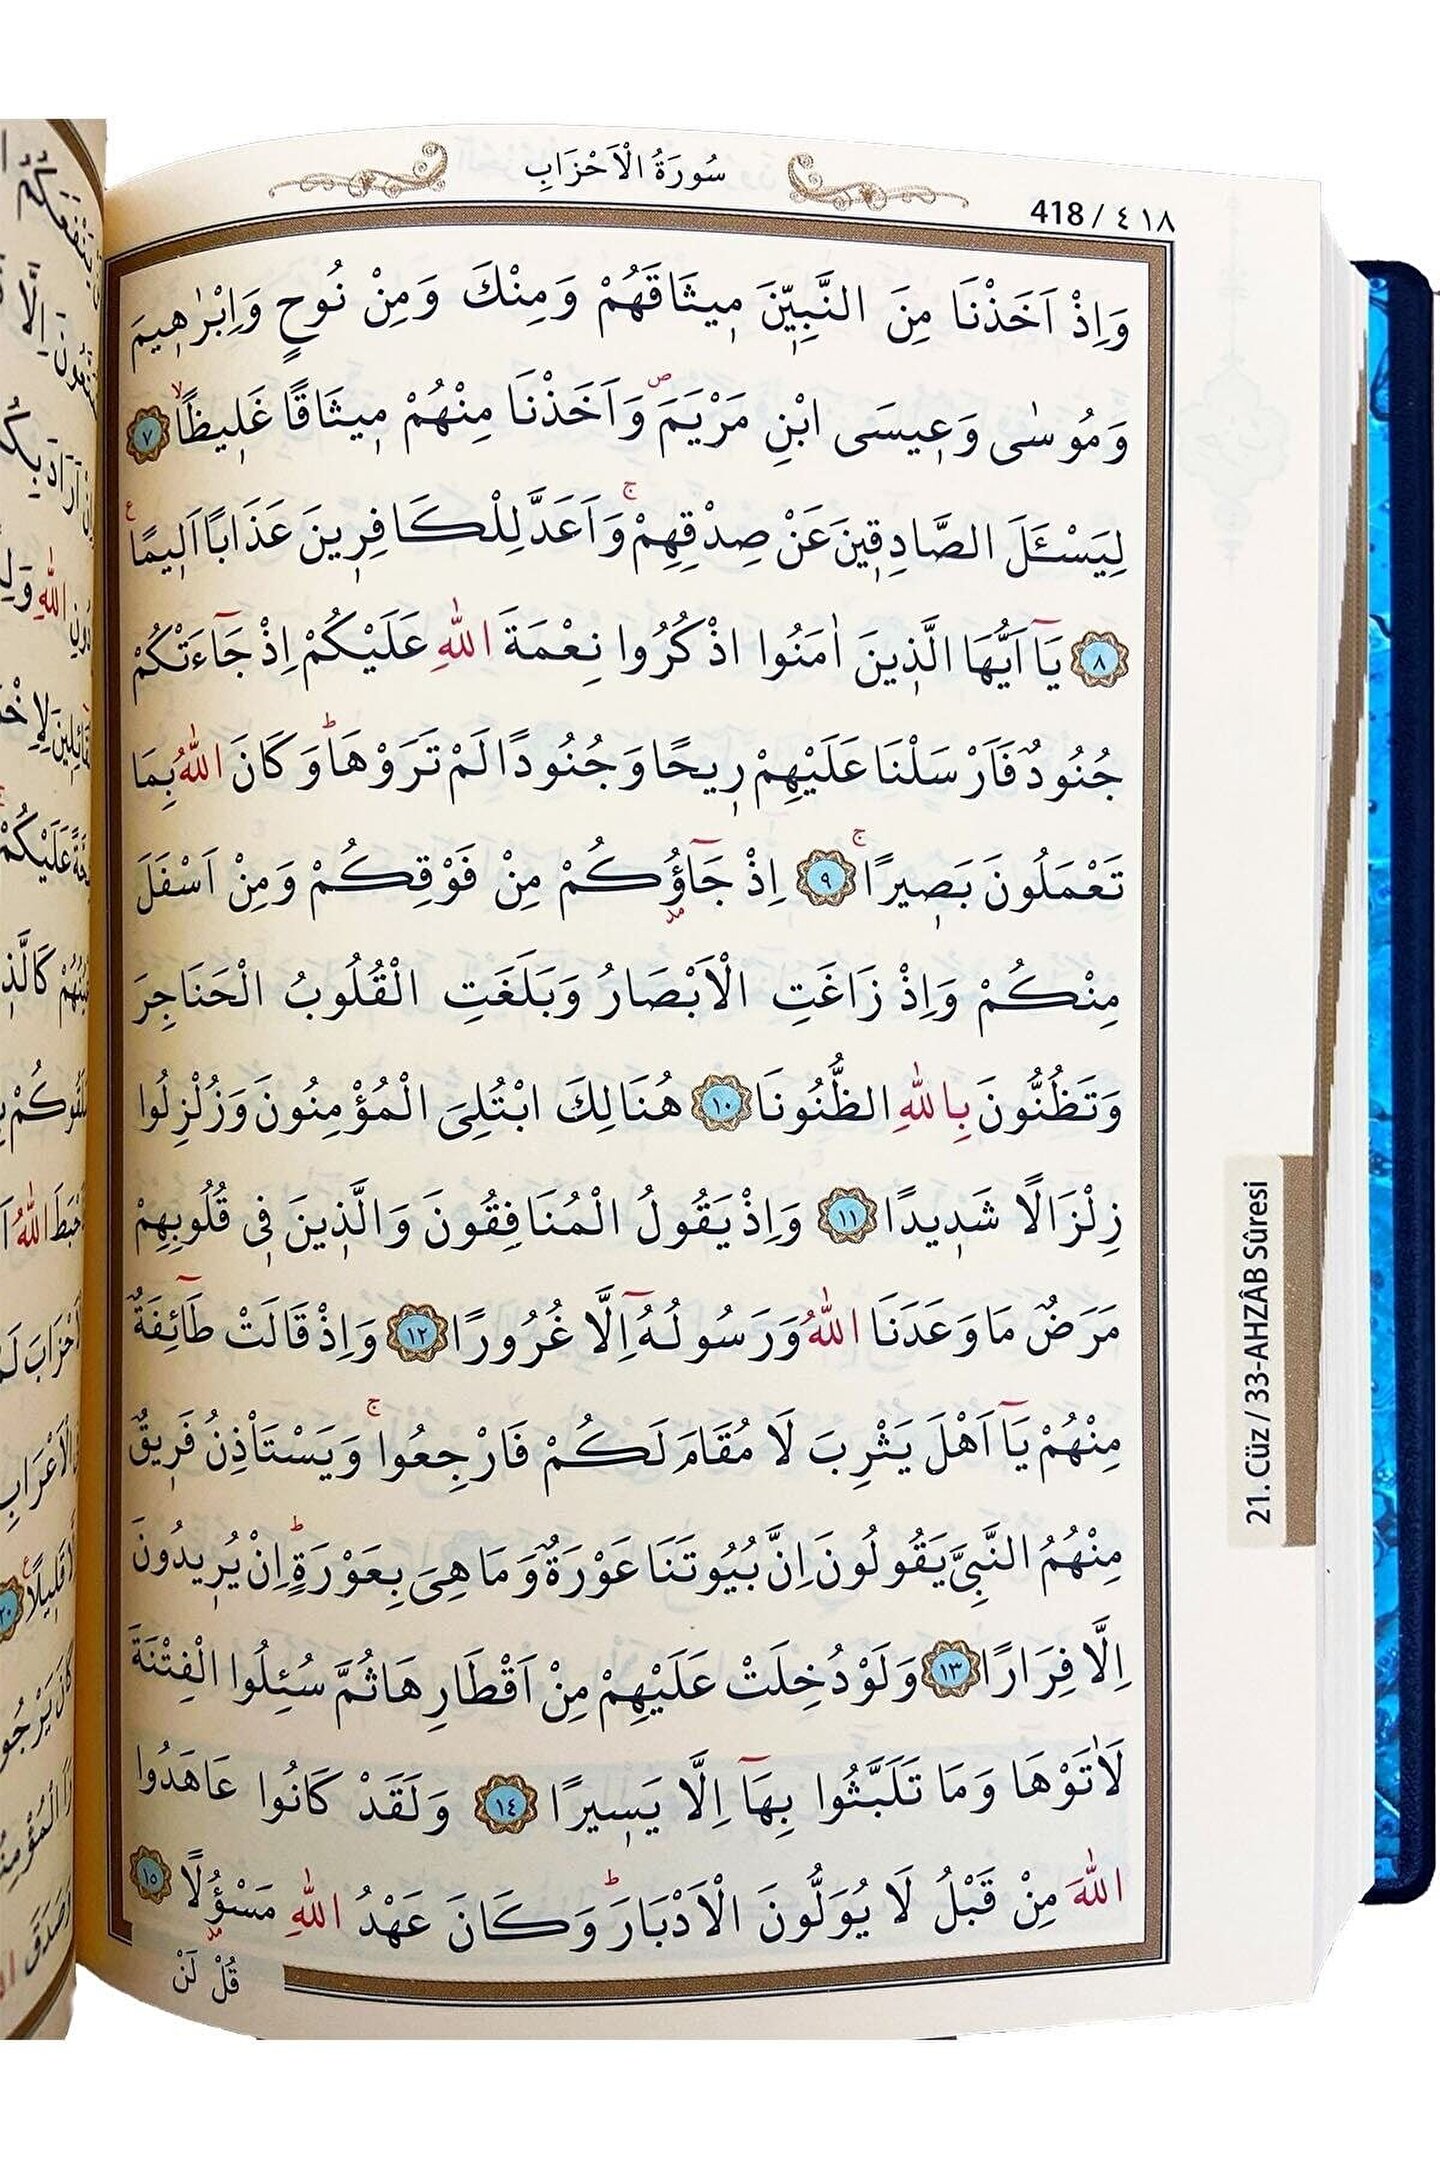 سُورَةُ الْاَحْزَابِ
418 / ٤١٨
وَاِذْ اَخَذْنَا مِنَ النَّبِيّ۪نَ م۪يثَاقَهُمْ وَمِنْكَ وَمِنْ نُوحٍ وَاِبْرٰه۪يمَ
وَمُوسٰى وَع۪يسَى ابْنِ مَرْيَمَۖ وَاَخَذْنَا مِنْهُمْ م۪يثَاقًا غَل۪يظًاۙ ٧
لِيَسْـَٔلَ الصَّادِق۪ينَ عَنْ صِدْقِهِمْۚ وَاَعَدَّ لِلْكَافِر۪ينَ عَذَابًا اَل۪يمًاࣖ
٨ يَٓا اَيُّهَا الَّذ۪ينَ اٰمَنُوا اذْكُرُوا نِعْمَةَ اللّٰهِ عَلَيْكُمْ اِذْ جَٓاءَتْكُمْ
جُنُودٌ فَاَرْسَلْنَا عَلَيْهِمْ ر۪يحًا وَجُنُودًا لَمْ تَرَوْهَاۜ وَكَانَ اللّٰهُ بِمَا
تَعْمَلُونَ بَص۪يرًاۚ ٩ اِذْ جَٓاؤُ۫كُمْ مِنْ فَوْقِكُمْ وَمِنْ اَسْفَلَ
مِنْكُمْ وَاِذْ زَاغَتِ الْاَبْصَارُ وَبَلَغَتِ الْقُلُوبُ الْحَنَاجِرَ
وَتَظُنُّونَ بِاللّٰهِ الظُّنُونَا ١٠ هُنَالِكَ ابْتُلِيَ الْمُؤْمِنُونَ وَزُلْزِلُوا
زِلْزَالًا شَد۪يدًا ١١ وَاِذْ يَقُولُ الْمُنَافِقُونَ وَالَّذ۪ينَ ف۪ي قُلُوبِهِمْ
مَرَضٌ مَا وَعَدَنَا اللّٰهُ وَرَسُولُهُٓ اِلَّا غُرُورًا ١٢ وَاِذْ قَالَتْ طَٓائِفَةٌ
مِنْهُمْ يَٓا اَهْلَ يَثْرِبَ لَا مُقَامَ لَكُمْ فَارْجِعُواۚ وَيَسْتَأْذِنُ فَر۪يقٌ
مِنْهُمُ النَّبِيَّ يَقُولُونَ اِنَّ بُيُوتَنَا عَوْرَةٌ وَمَا هِيَ بِعَوْرَةٍۜ اِنْ يُر۪يدُونَ
اِلَّا فِرَارًا ١٣ وَلَوْ دُخِلَتْ عَلَيْهِمْ مِنْ اَقْطَارِهَا ثُمَّ سُئِلُوا الْفِتْنَةَ
لَاٰتَوْهَا وَمَا تَلَبَّثُوا بِهَٓا اِلَّا يَس۪يرًا ١٤ وَلَقَدْ كَانُوا عَاهَدُوا
اللّٰهَ مِنْ قَبْلُ لَا يُوَلُّونَ الْاَدْبَارَۜ وَكَانَ عَهْدُ اللّٰهِ مَسْؤُ۫لًا ١٥
قُلْ لَنْ
21. Cüz / 33-AHZÂB Sûresi